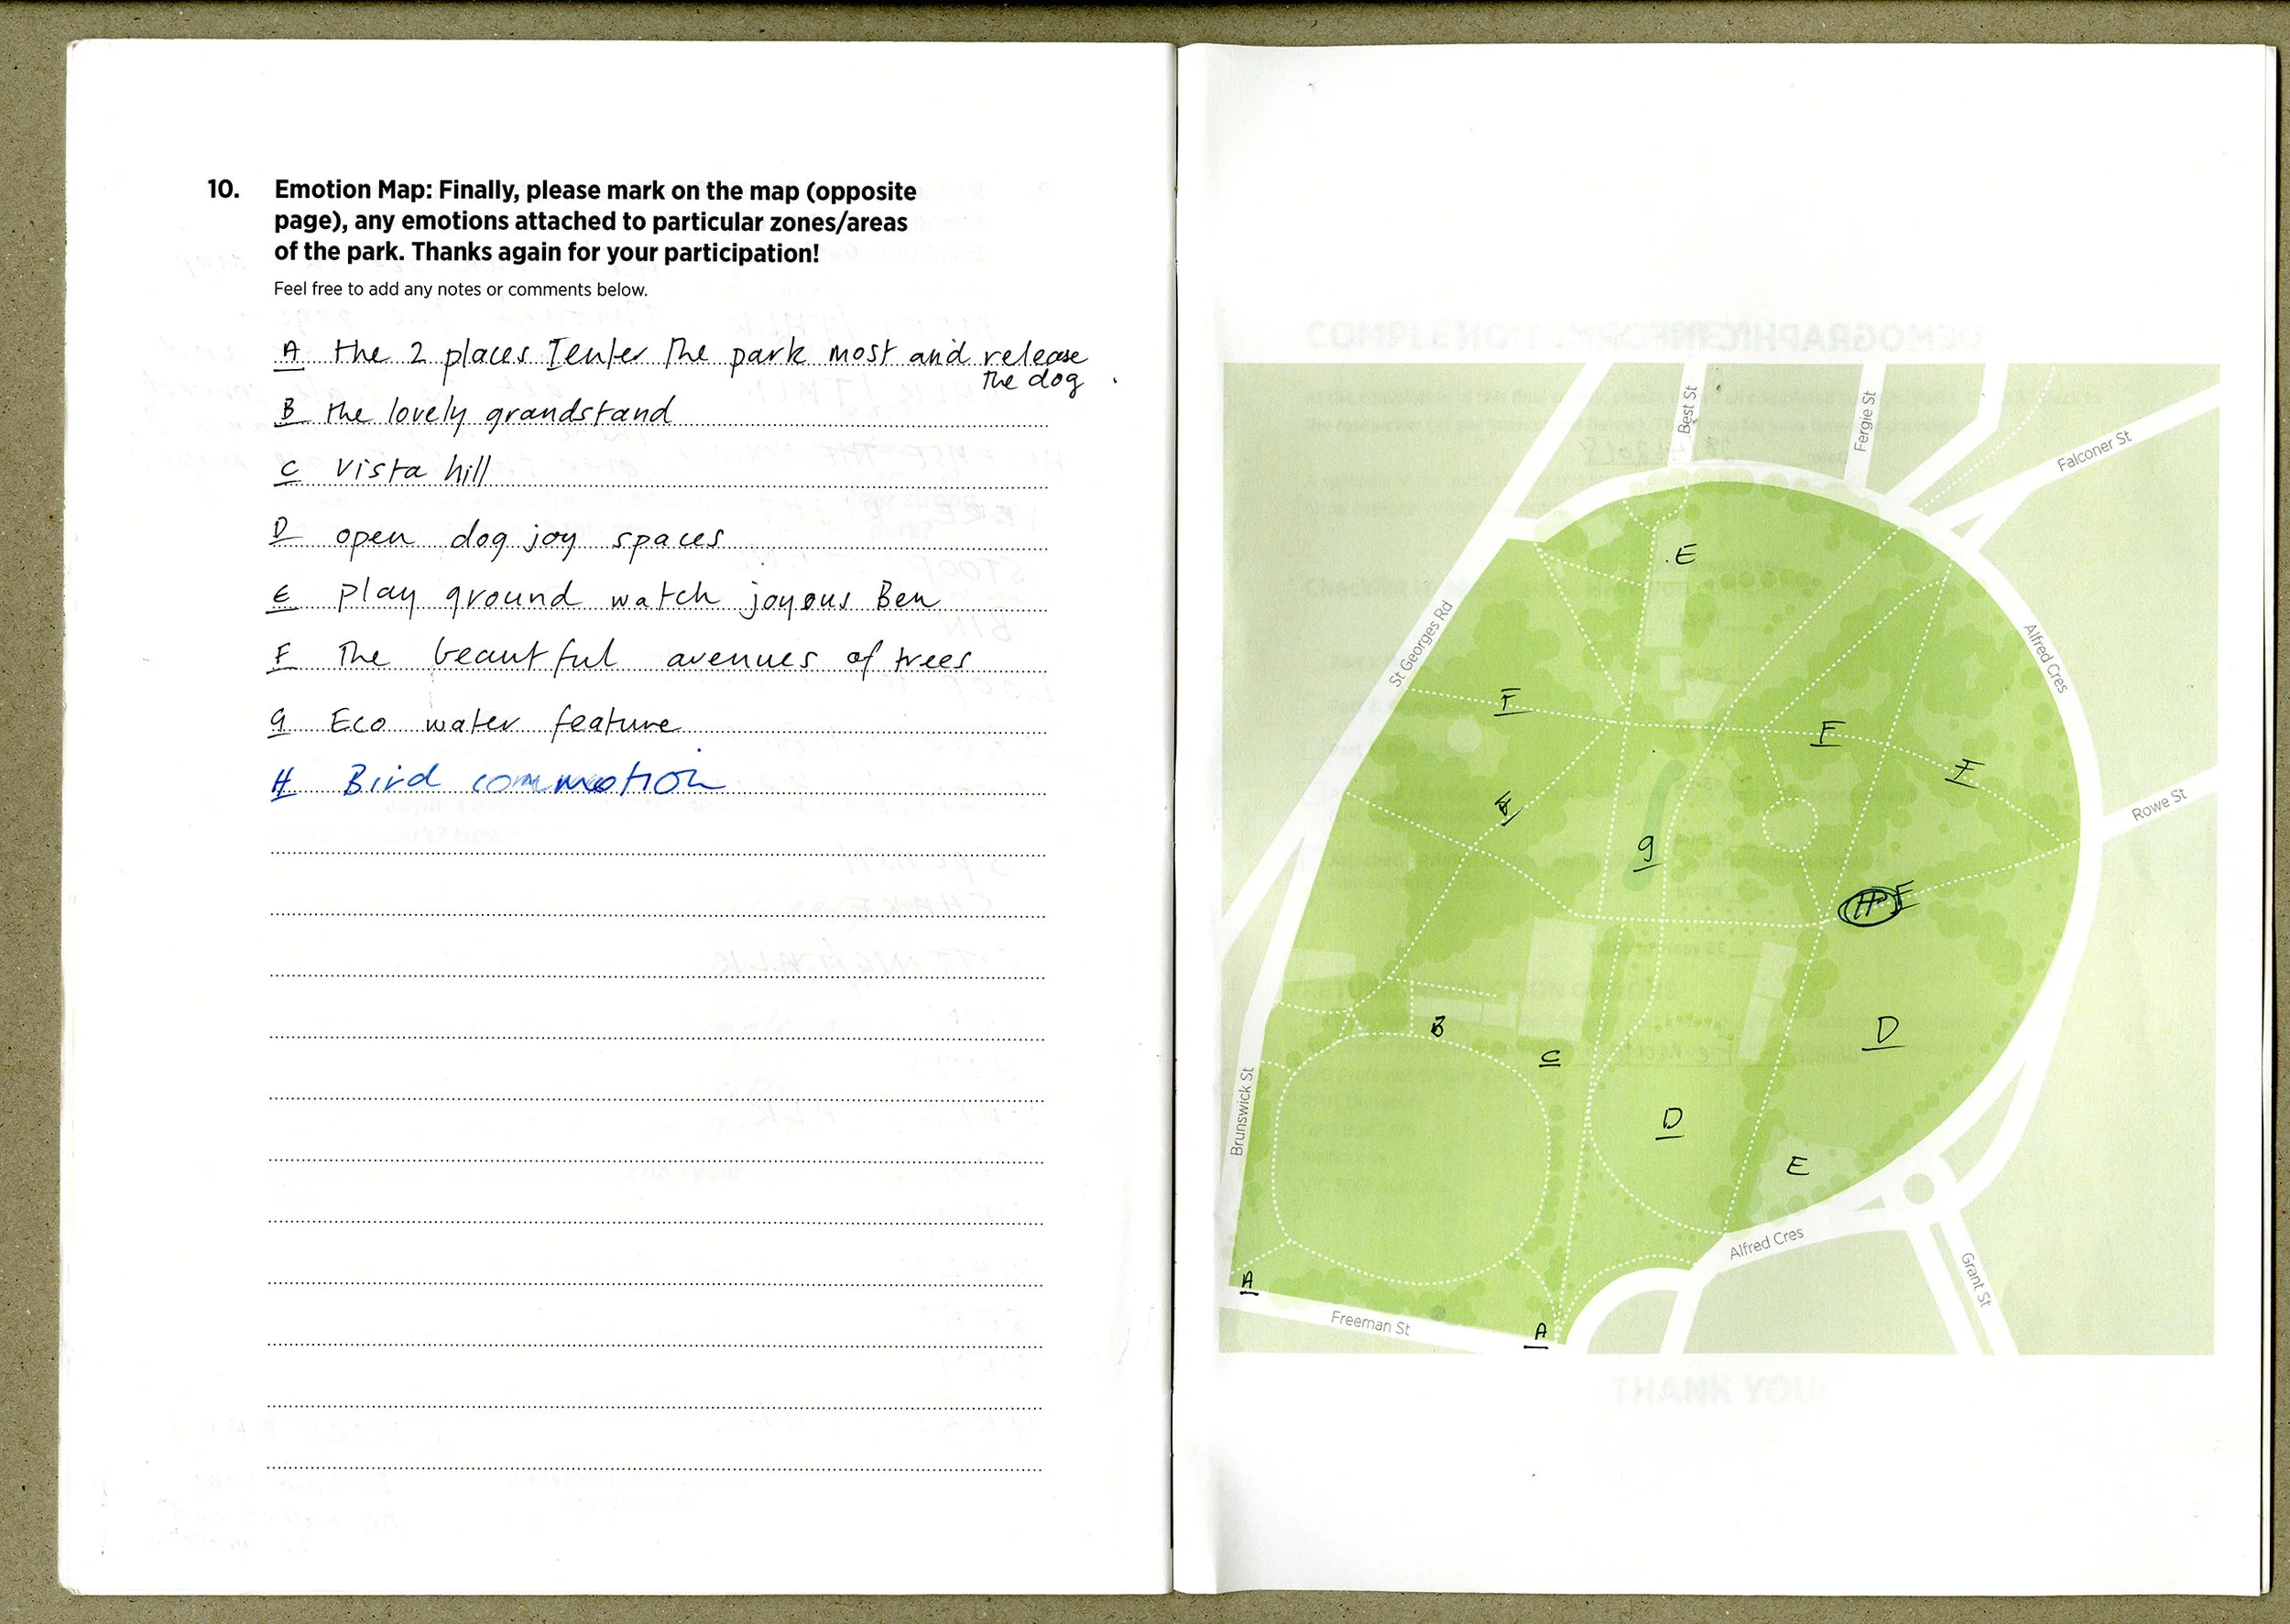 10. Emotion Map: Finally, please mark on the map (opposite
page), any emotions attached to particular zones/areas
of the park. Thanks again for your participation!
Feel free to add any notes or comments below.
A the 2 places I enter the park most and release
the dog.
B the lovely grandstand
C vista hill
D open dog joy spaces
E play ground watch joyous Ben
F The beautful avenues of trees
g Eco water feature
H Bird commotion
Best St
Fergie St
Falconer St
E
St Georges Rd
Alfred Cres
F
F
F
F
Rowe St
g
H F
B
C
D
D
Brunswick St
E
Alfred Cres
Grant St
A
Freeman St
A
THANK YOU